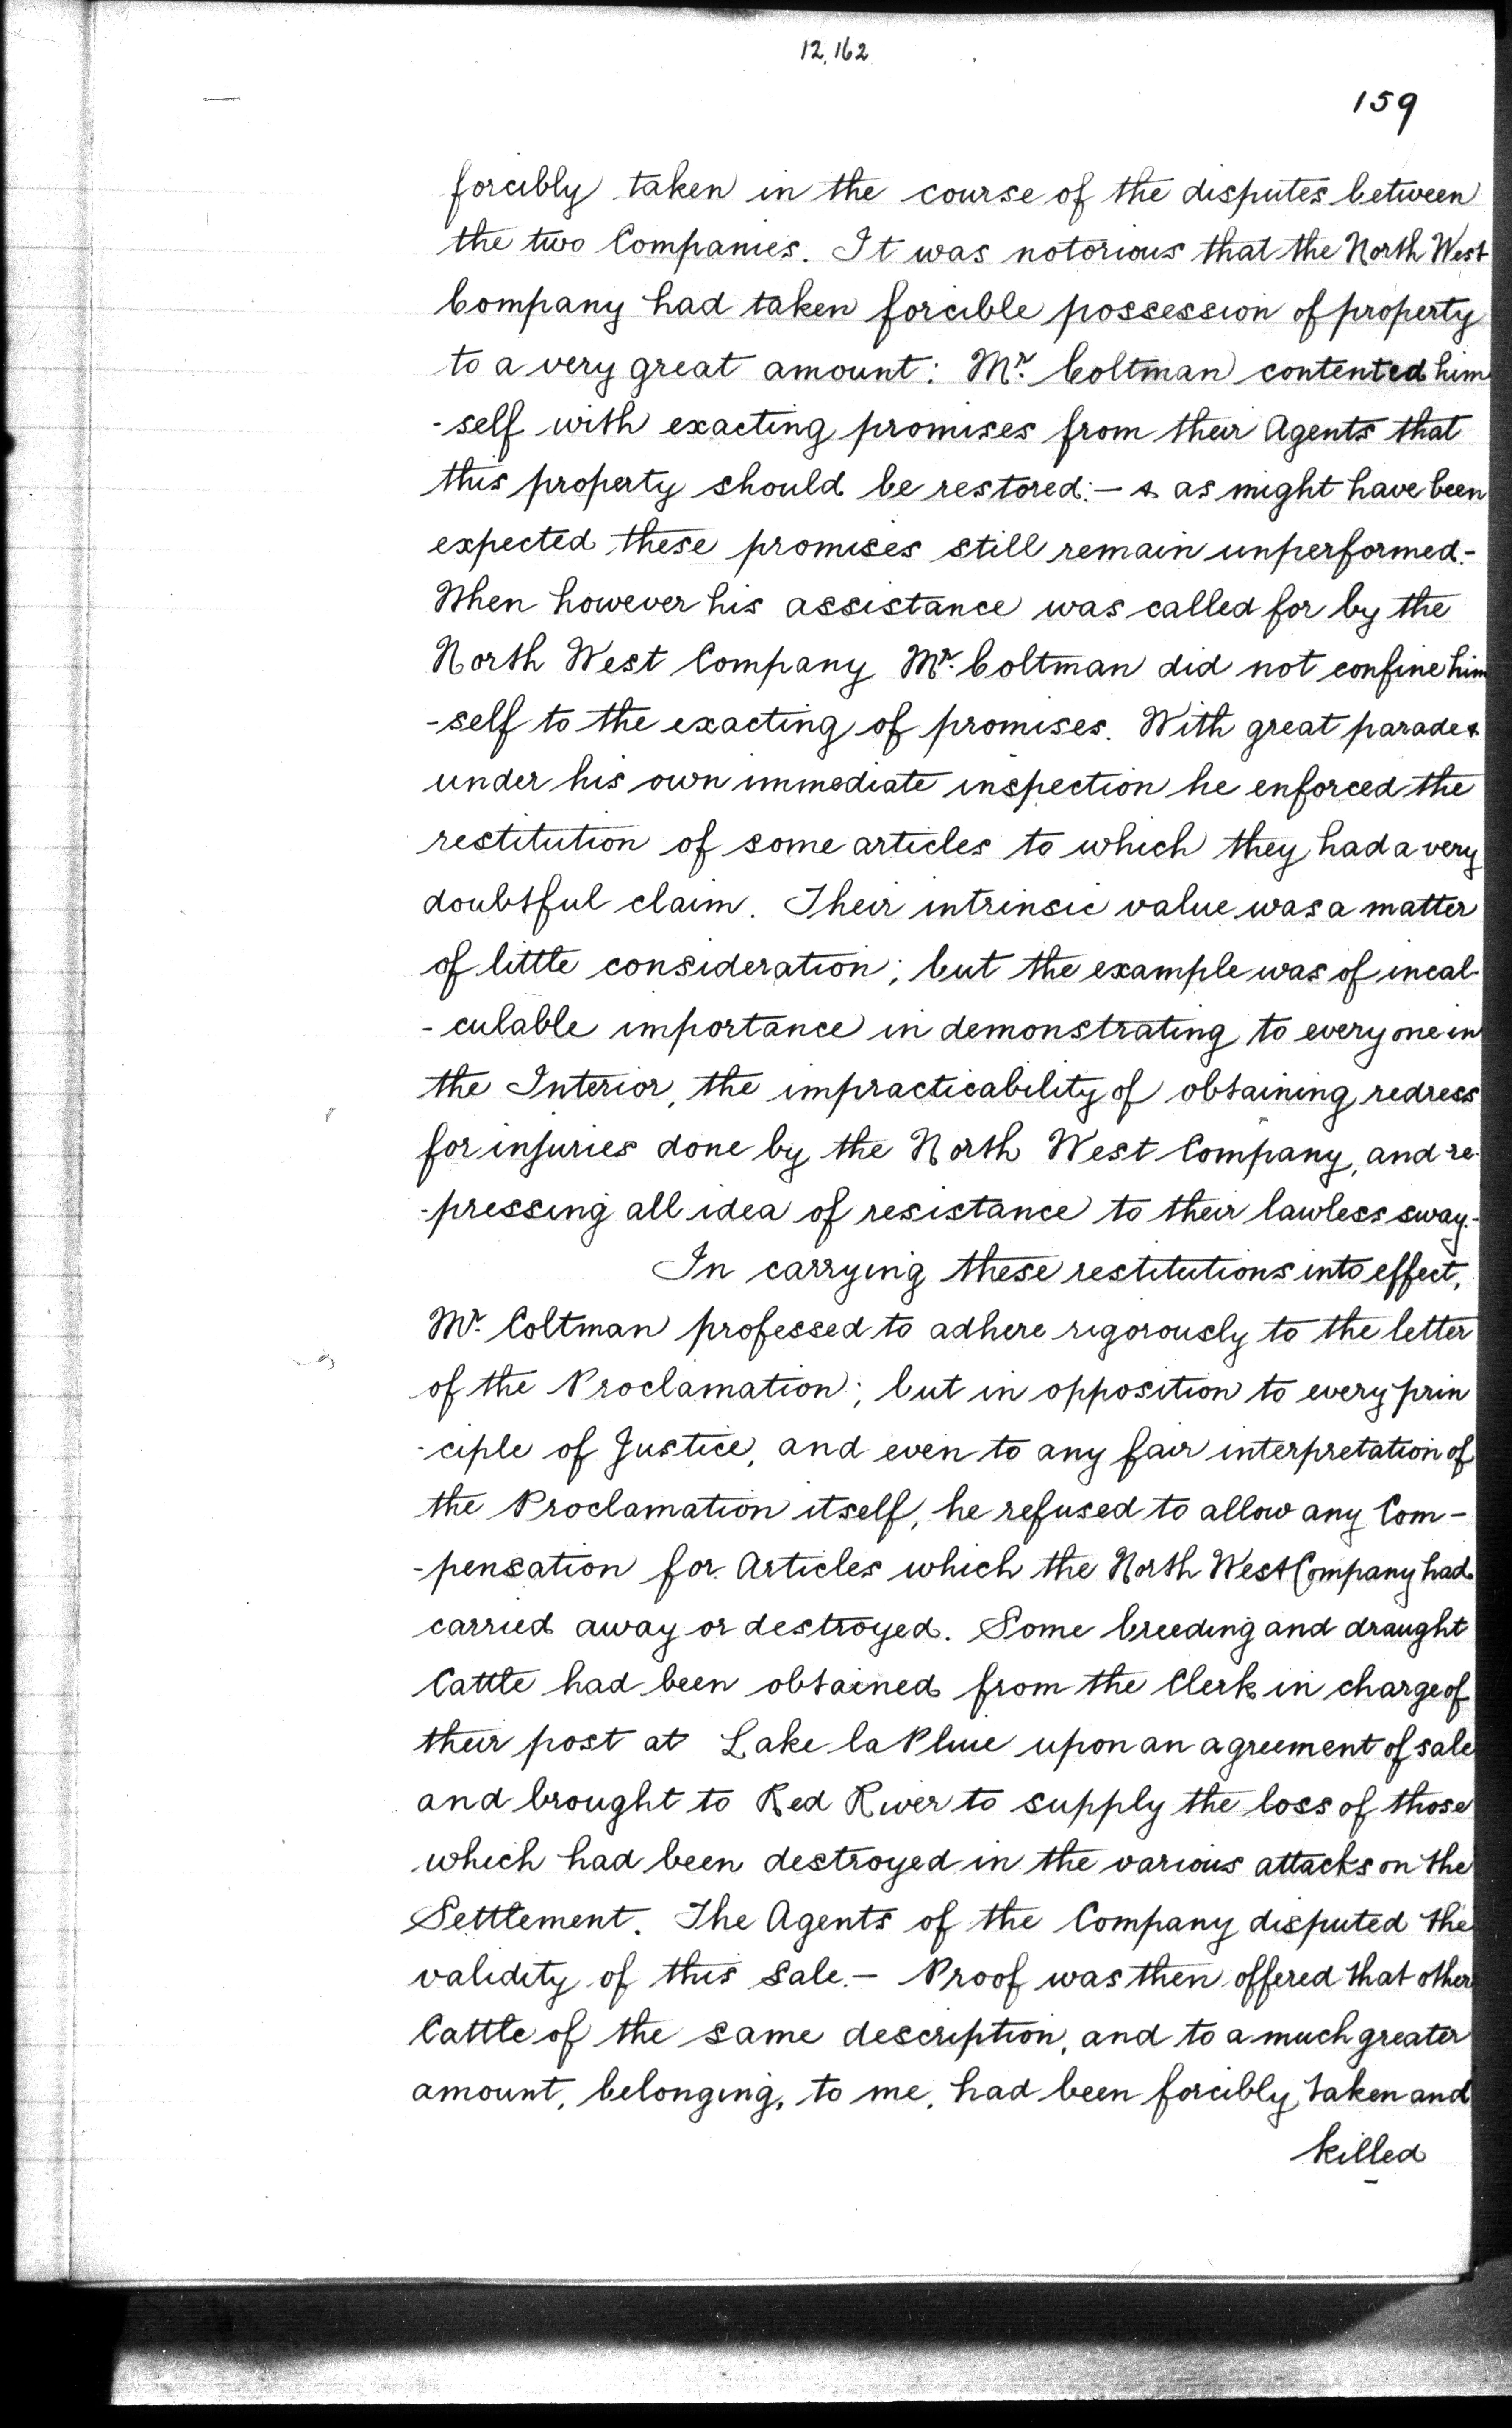 12,162
159
forcibly taken in the course of the disputes between
the two Companies. It was notorious that the North West
Company had taken forcible possession of property
to a very great amount: Mr. Coltman contented him
-self with exacting promises from their Agents that
this property should be restored:— & as might have been
expected these promises still remain unperformed.-
When however his assistance was called for by the
North West Company Mr. Coltman did not confine him
-self to the exacting of promises. With great parade &
under his own immediate inspection he enforced the
restitution of some articles to which they had a very
doubtful claim. Their intrinsic value was a matter
of little consideration; but the example was of incal-
-culable importance in demonstrating to every one in
the Interior, the impracticability of obtaining redress
for injuries done by the North West Company, and re-
-pressing all idea of resistance to their lawless sway.-
In carrying these restitutions into effect,
Mr. Coltman professed to adhere rigorously to the letter
of the Proclamation; but in opposition to every prin
-ciple of Justice, and even to any fair interpretation of
the Proclamation itself, he refused to allow any Com-
-pensation for Articles which the North West Company had
carried away or destroyed. Some breeding and draught
Cattle had been obtained from the Clerk in charge of
their post at Lake la Pluie upon an agreement of sale
and brought to Red River to supply the loss of those
which had been destroyed in the various attacks on the
Settlement. The Agents of the Company disputed the
validity of this Sale.— Proof was then offered that other
Cattle of the same description, and to a much greater
amount, belonging, to me, had been forcibly taken and
killed